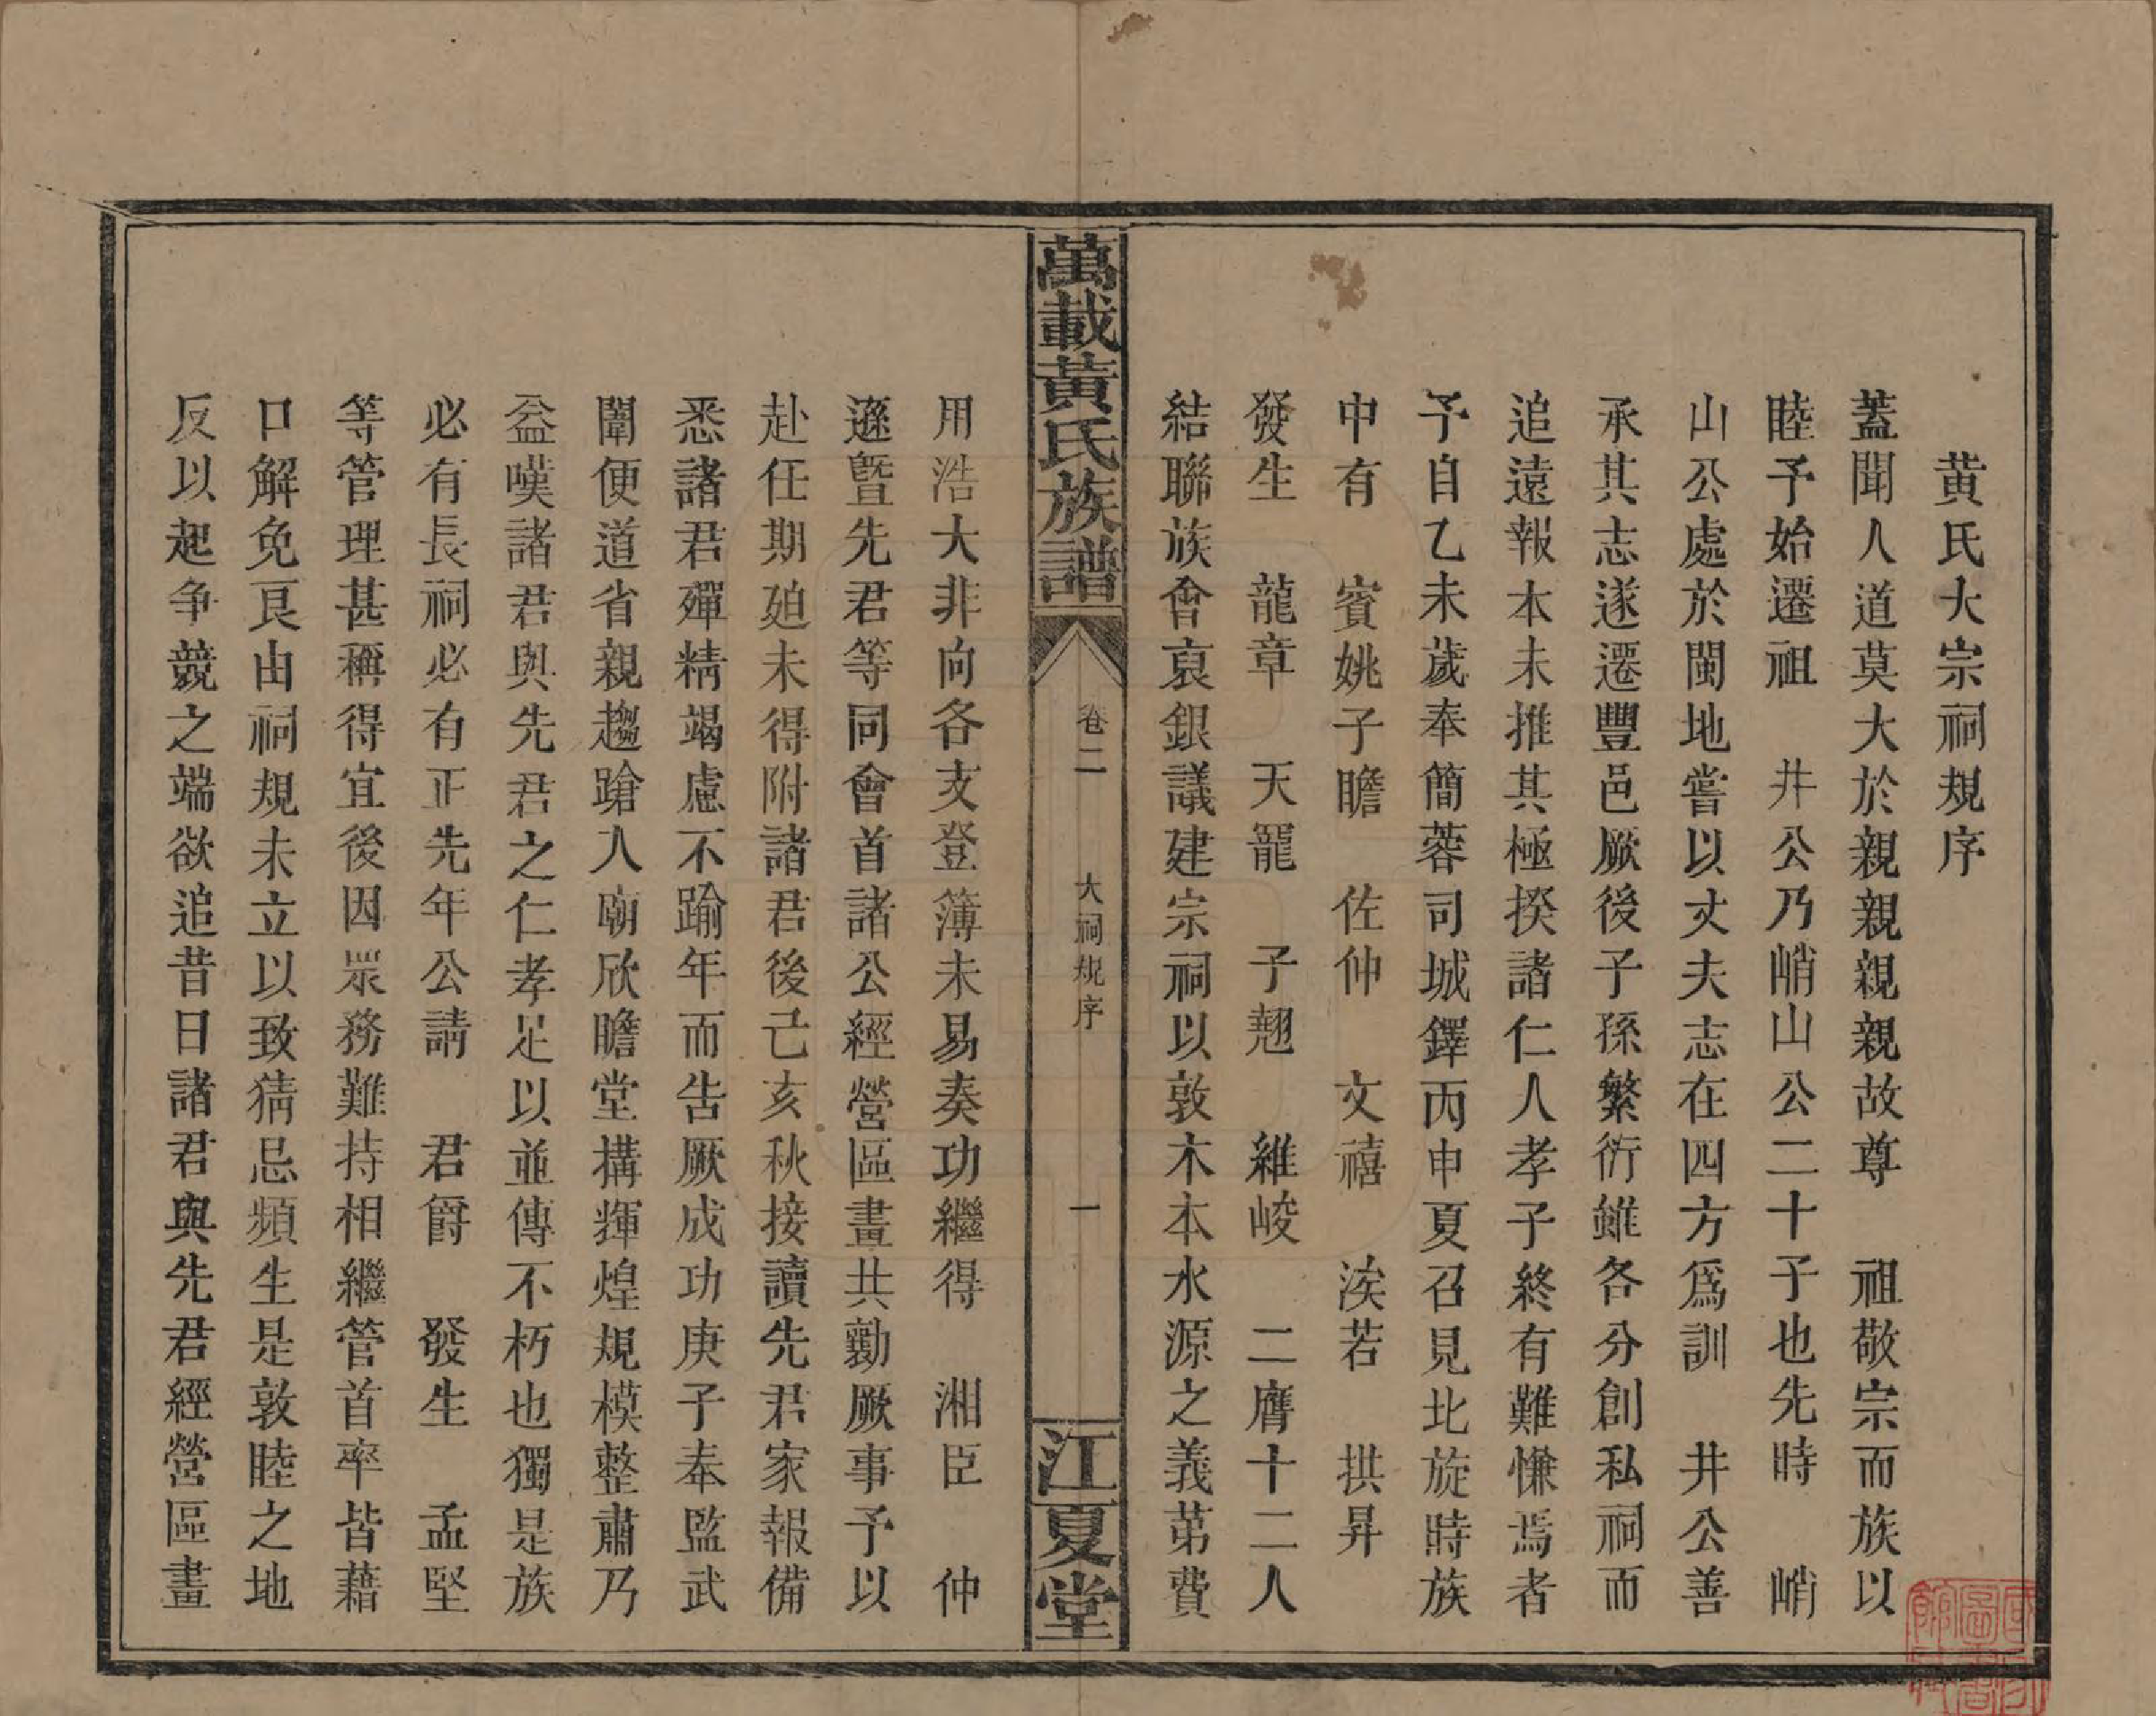 黄氏大宗祠規序
蓋聞人道莫大於親親親親故尊　祖敬宗而族以
睦予始遷祖　井公乃峭山公二十子也先時　峭
山公處於閩地嘗以丈夫志在四方爲訓　井公善
承其志遂遷豐邑厥後子孫繁衍雖各分創私祠而
追遠報本未推其極揆諸仁人孝子終有難慊焉者
予自乙未歲奉簡蓉司城鐸丙申夏召見北旋時族
中有　賓姚子瞻　佐仲　文禧　涘若　拱昇
發生　龍章　天寵　子翹　維峻　二膺十二人
結聯族會裒銀議建宗祠以敦木本水源之義第費
萬載黃氏族譜　卷二　大祠規序　一　江夏堂
用浩大非向各支登簿未易奏功繼得　湘臣　仲
遜暨先君等同會首諸公經營區畫共勷厥事予以
赴任期廹未得附諸君後己亥秋接讀先君家報備
悉諸君殫精竭慮不踰年而告厥成功庚子奉監武
闈便道省親趨蹌入廟欣瞻堂搆輝煌規模整肅乃
益嘆諸君與先君之仁孝足以並傳不朽也獨是族
必有長祠必有正先年公請　君爵　發生　孟堅
等管理甚稱得宜後因衆務難持相繼管首率皆藉
口解免艮由祠規未立以致猜忌頻生是敦睦之地
反以起争競之端欲追昔日諸君與先君經營區畫